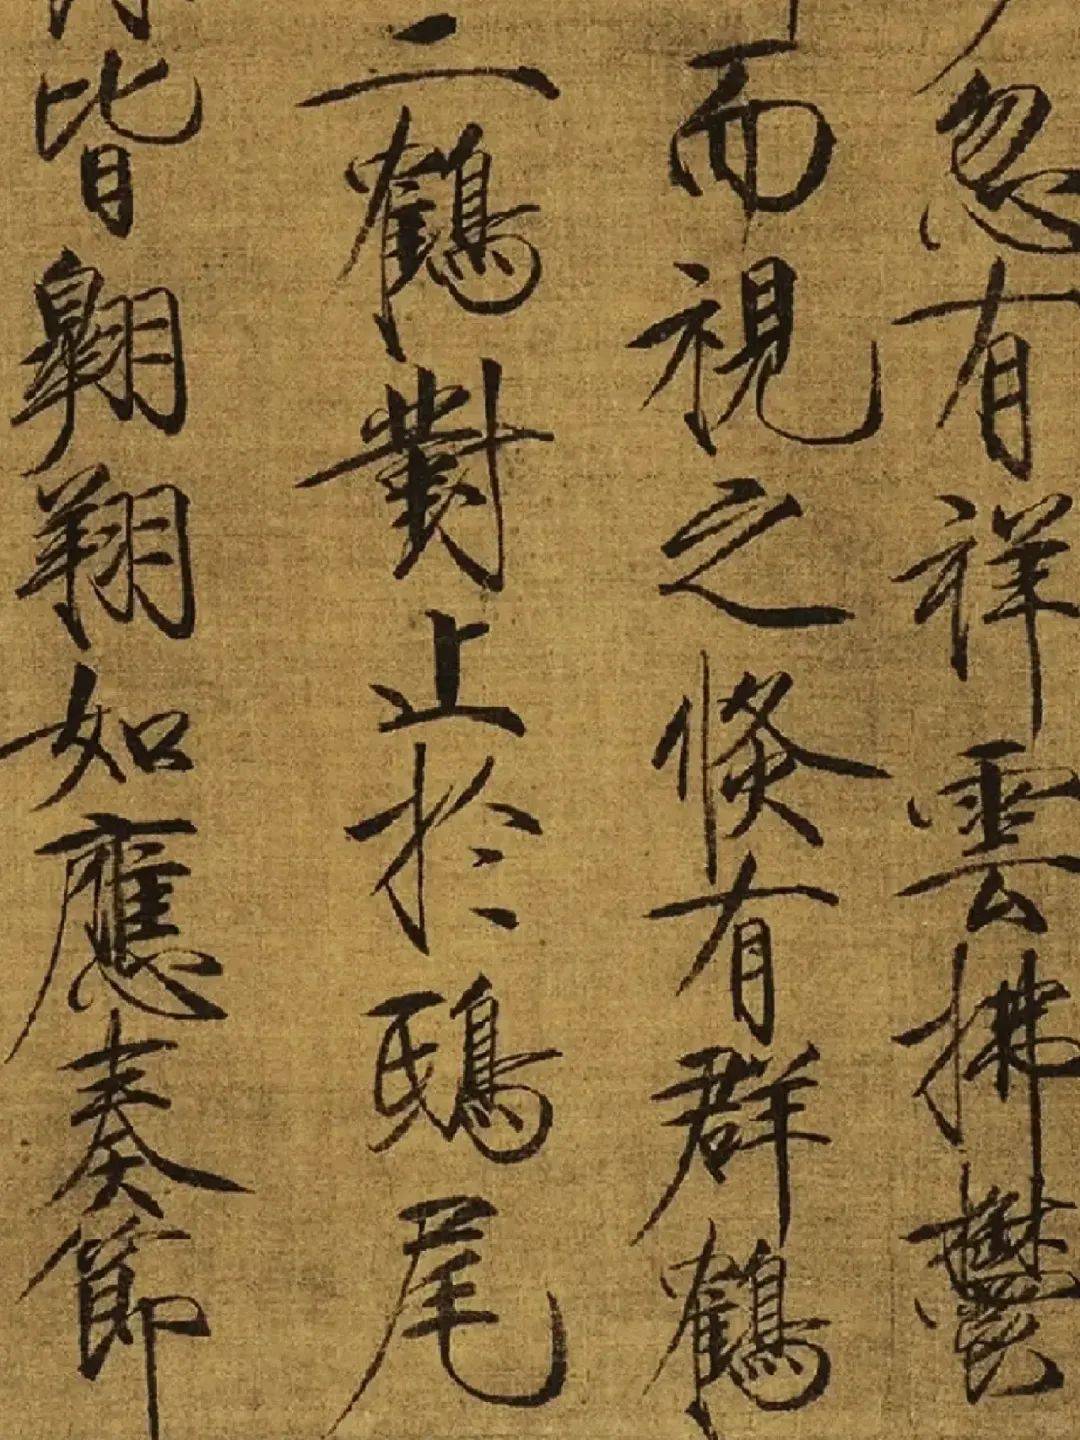 忽有祥雲拂鬱
而視之倏有群鶴
二鶴對止於鴟尾
皆翱翔如應奏節